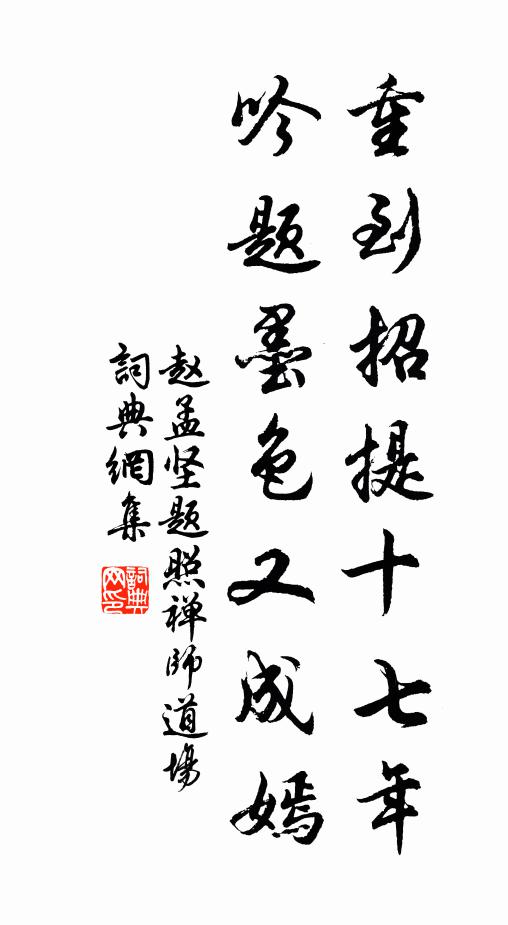 重到招提十七年
吟题墨色又成嫣
赵孟坚题照禅師道場
詞典網集
詞典网印